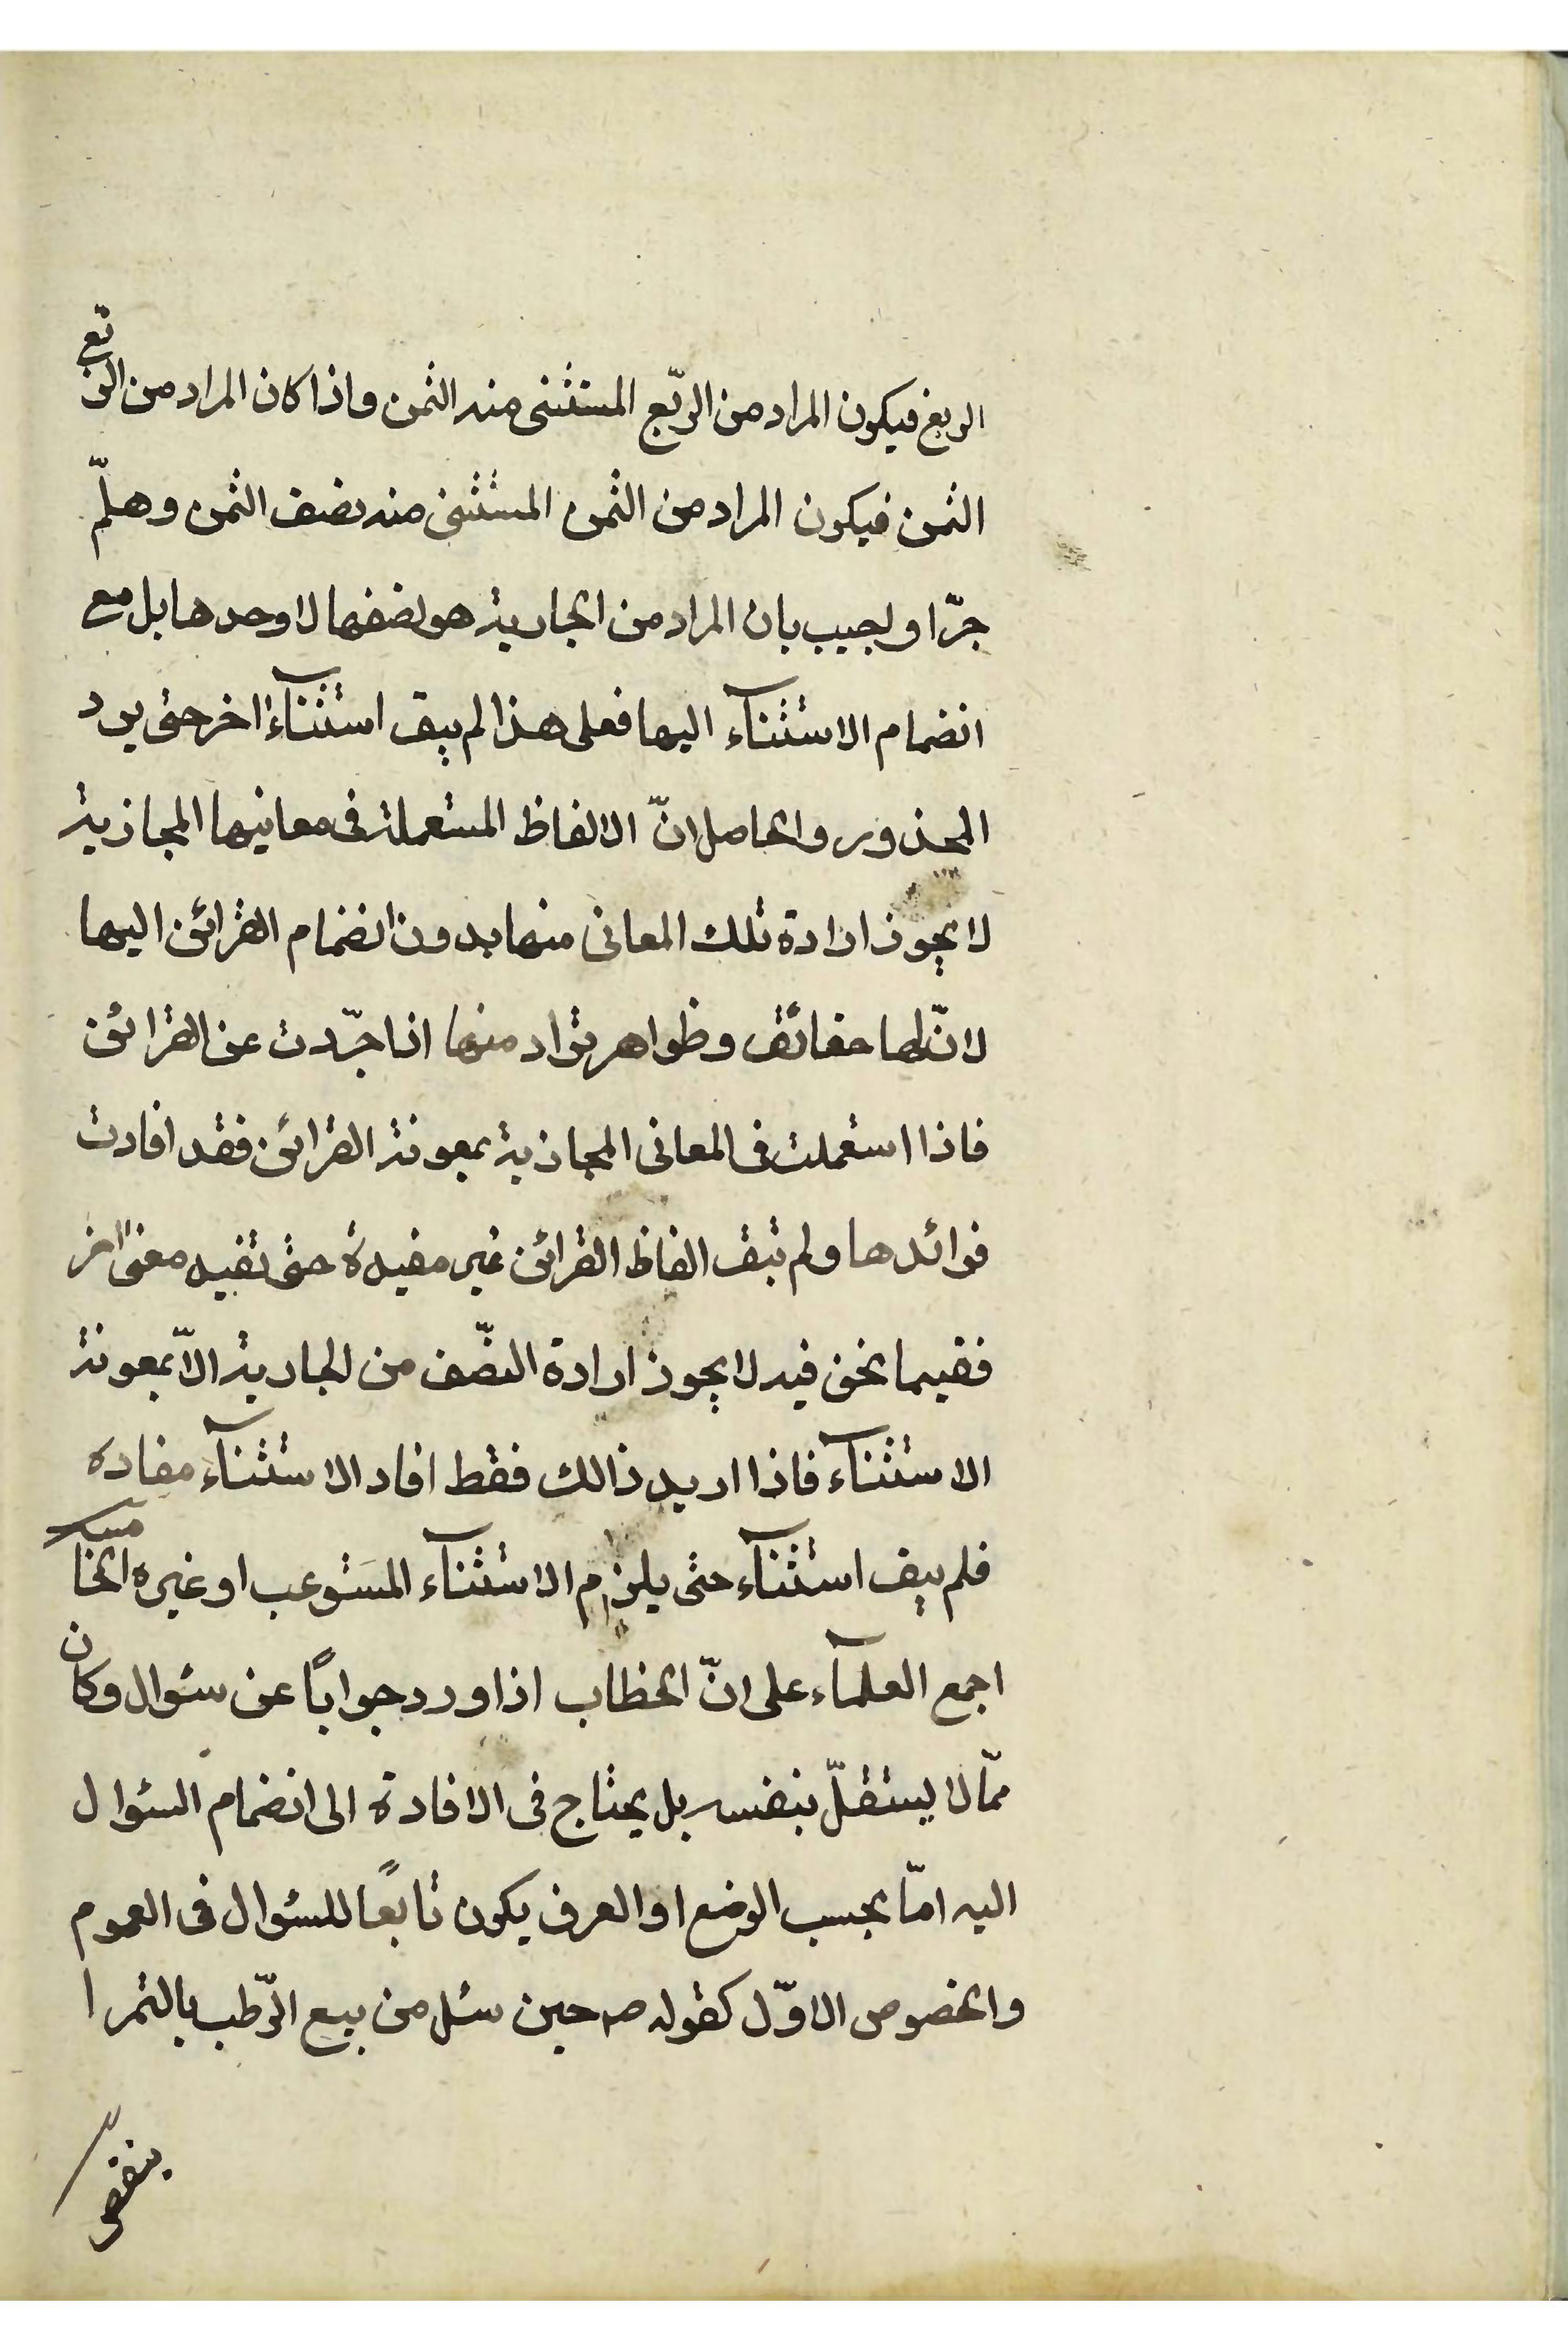 الربع فيكون المراد من الربّع المستثنى منه الثمن واذا كان المراد من الربع
الثمن فيكون المراد من الثمن المستثنى منه نصف الثمن وهلمّ
جرّا واجيب بان المراد من الجارية هو نصفها لا وحدها بل مع
انضمام الاستثنآء اليها فعلى هذا لم يبق استثنآء اخر حتى يرد
المحذور والحاصل انّ الالفاظ المستعملة فى معانيها المجازية
لا يجوز ارادة تلك المعانى منها بدون انضمام القرائن اليها
لانّ لها حقائق وظواهر تراد منها اذا جرّدت عن القرائن
فاذا استعملت فى المعانى المجازية بمعونة القرائن فقد افادت
فوائدها ولم تبق الفاظ القرائن غير مفيدة حتى تفيد معنى اخر
ففيما نحن فيه لا يجوز ارادة النصّف من الجارية الاّ بمعونة
الاستثنآء فاذا اريد ذالك فقط افاد الاستثنآء مفاده
فلم يبق استثنآء حتى يلزم الاستثنآء المستوعب او غيره الخامسة
اجمع العلمآء على انّ الخطاب اذا ورد جوابًا عن سئوال وكان
ممّا لا يستقلّ بنفسه بل يحتاج فى الافادة الى انضمام السئوال
اليه امّا بحسب الوضع او العرف يكون تابعًا للسئوال فى العموم
والخصوص الاوّل كقوله ص حين سئل من بيع الرّطب بالتمر ا
ينقص